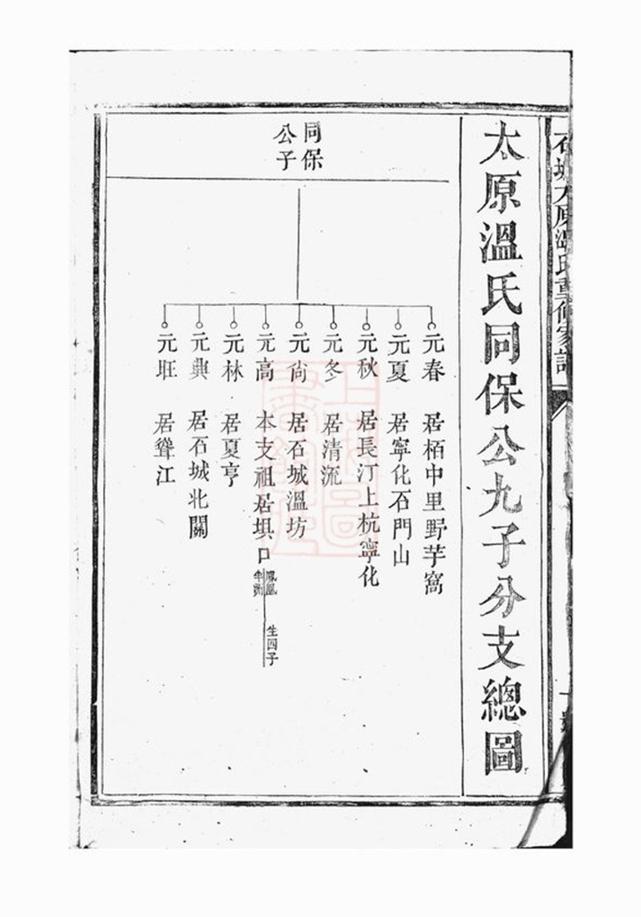 石城太原溫氏重修家譜
太原溫氏同保公九子分支總圖
同保
公子
元春 居栢中里野芋窩
元夏 居寧化石門山
元秋 居長汀上杭寧化
元冬 居清流
元尙 居石城溫坊
元高 本支祖居埧口 鳳凰 生四子
元林 居夏亨
元典 居石城北關
元旺 居聳江